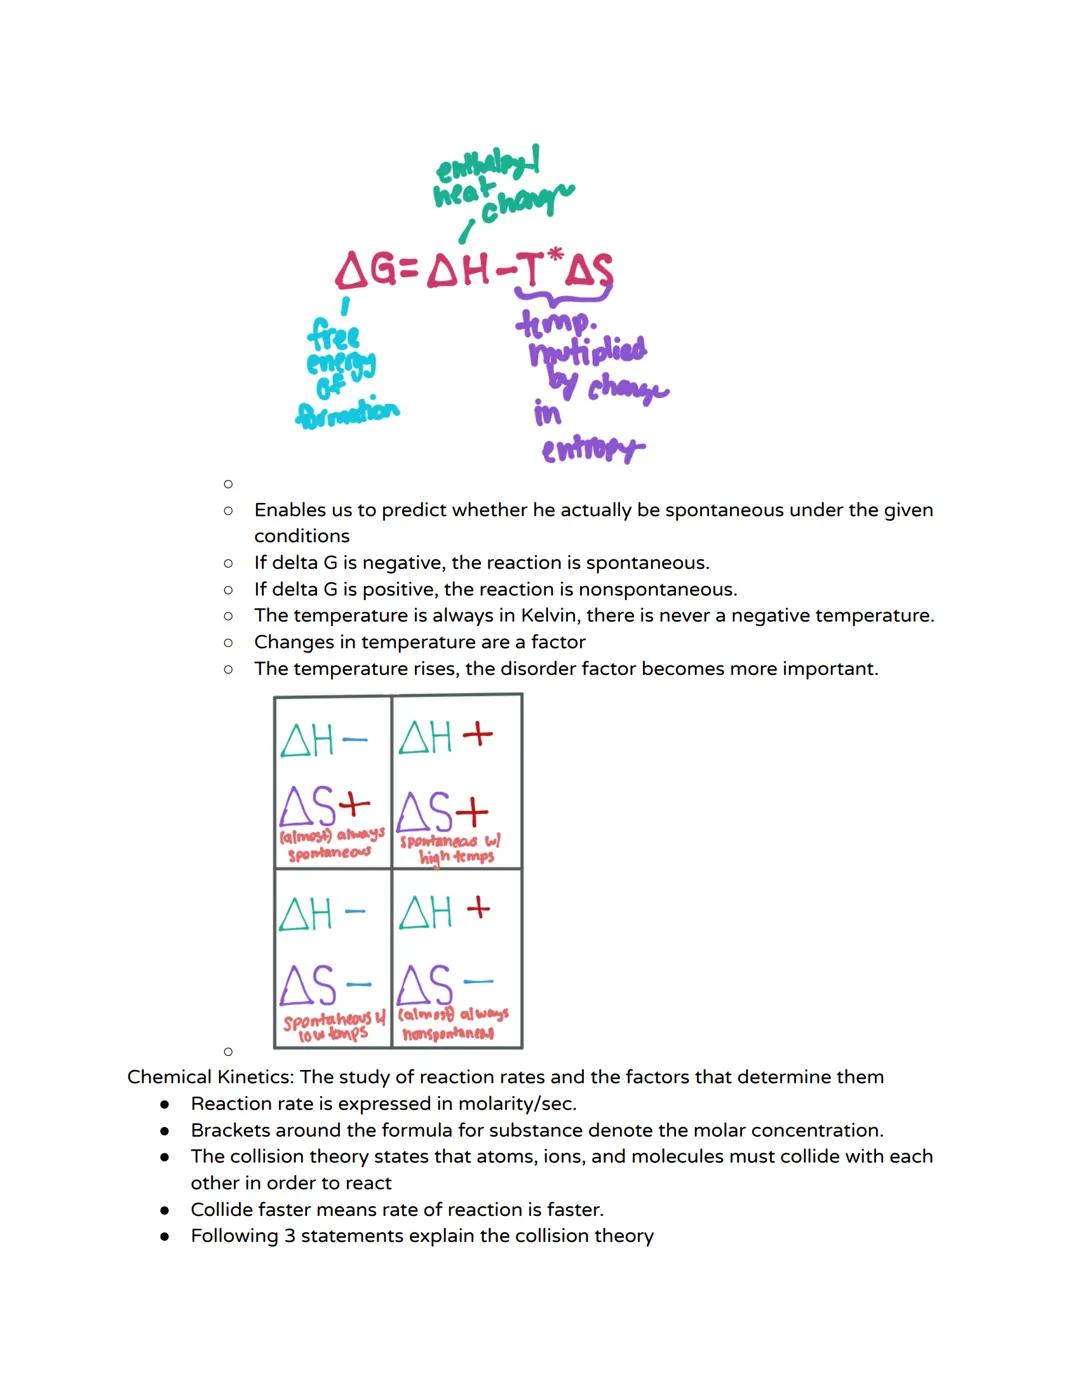 enthalpy/
heat
change
ΔG=ΔH-T*ΔS
free
energy
of
formation
temp.
mutiplied
by change
in
entropy
○
○ Enables us to predict whether he actually be spontaneous under the given
conditions
○ If delta G is negative, the reaction is spontaneous.
○ If delta G is positive, the reaction is nonspontaneous.
○ The temperature is always in Kelvin, there is never a negative temperature.
○ Changes in temperature are a factor
○ The temperature rises, the disorder factor becomes more important.
ΔH -
ΔS+
(almost) always
spontaneous
ΔH +
ΔS+
spontaneas w/
high temps
ΔH -
ΔS -
spontaneous w/
low temps
ΔH +
ΔS -
(almost) always
nonspontaneas
○
Chemical Kinetics: The study of reaction rates and the factors that determine them
● Reaction rate is expressed in molarity/sec.
● Brackets around the formula for substance denote the molar concentration.
● The collision theory states that atoms, ions, and molecules must collide with each
other in order to react
● Collide faster means rate of reaction is faster.
● Following 3 statements explain the collision theory